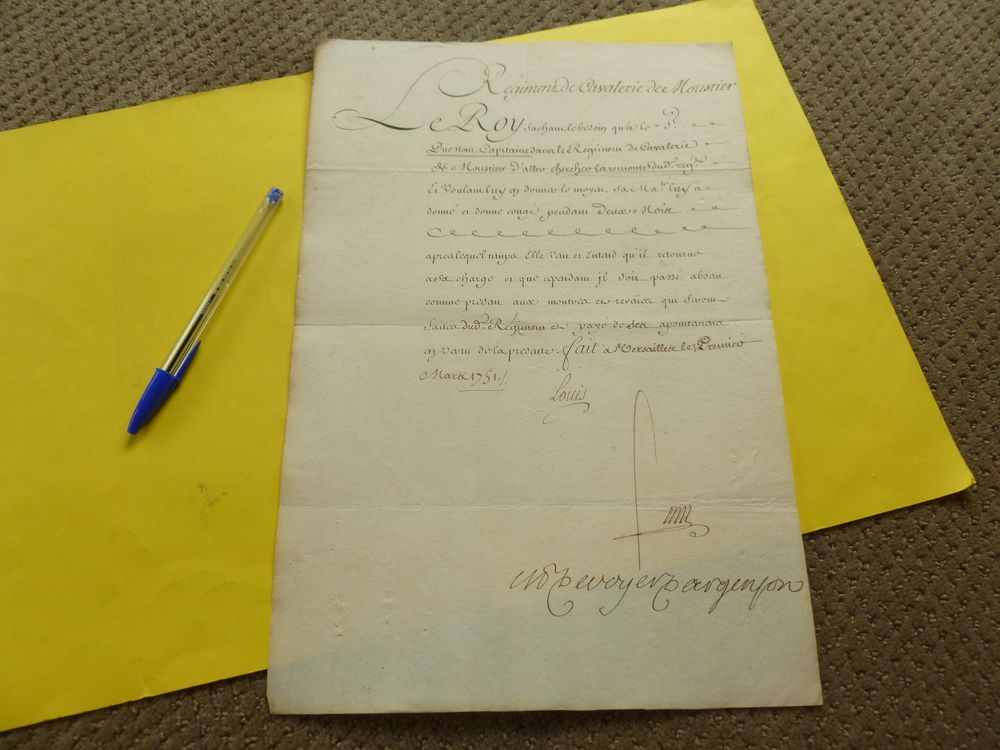 Regiment de Cavalerie de Moustier
Le Roy sachant le besoin qu'a le S.r
Capitaine dans le Régiment de Cavalerie
de Moustier d'aller chercher la remonte dud. reg.t
Et voulant luy en donner le moyen, Sa Ma.té luy a
donné et donne congé pendant deux Mois
apres lequel temps Elle veut et entend qu'il retourne
a sa charge et que cependant il soit passé absent
comme present aux montres et reveües qui seront
faites dud. Régiment et payé de ses apointemens
en vertu de la presente. fait a Versailles le Premier
Mars 1751.
Louis
M P De voyer D'argenson